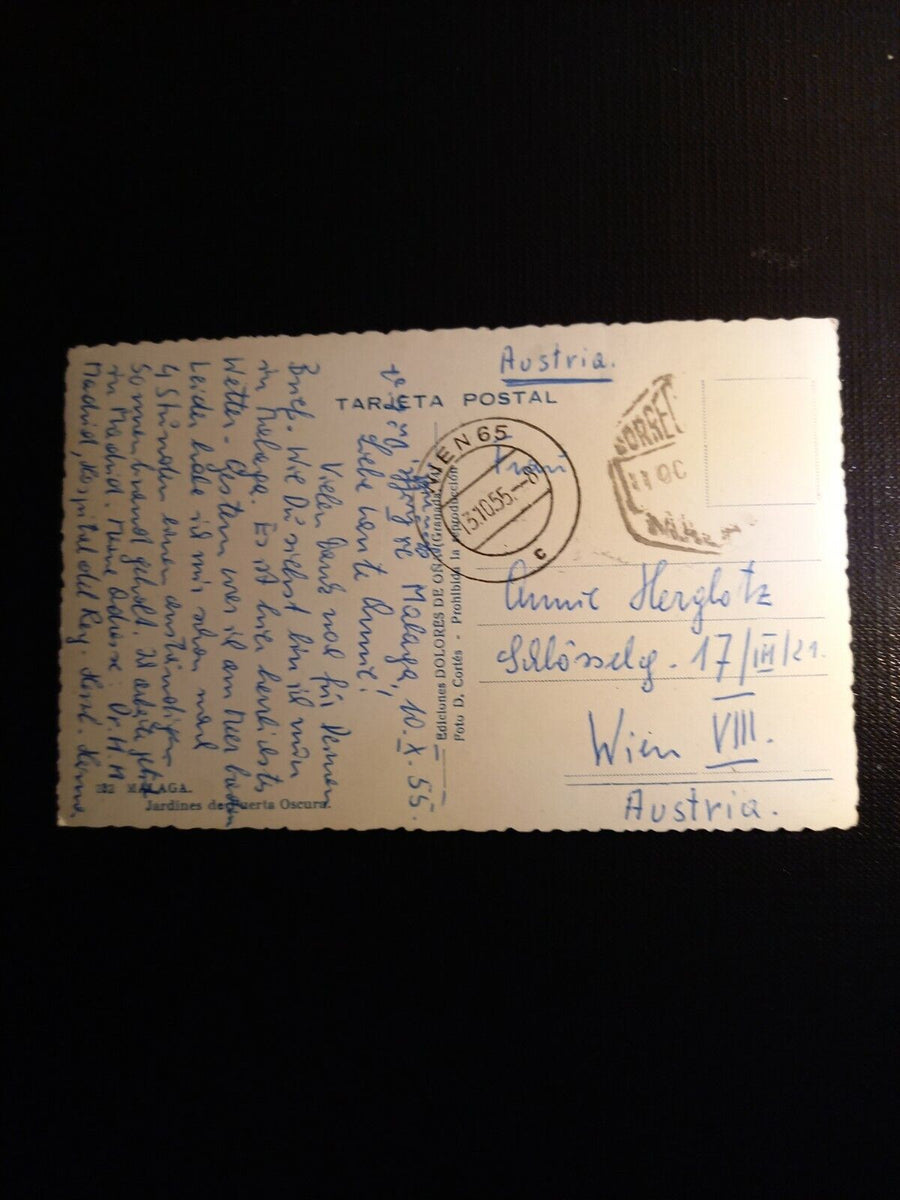 Austria.
TARJETA POSTAL
WIEN 65
13.10.55.-8
c
CORREO
11 OC
Frau
Annie Herglotz
Schlösselg. 17/III/21.
Wien VIII.
Austria.
Ediciones DOLORES DE OÑA (Granada)
Foto D. Cortés - Prohibida la reproducción
Malaga, 10.X.55.
Liebe Annie!
Vielen Dank für Deinen
Brief. Wie Du siehst bin ich nun
in Malaga. Es ist hier herrliches
Wetter - Gestern war ich am Meer baden
Leider habe ich mir schon nach
4 Stunden einen anständigen
Sonnenbrand geholt. Ich arbeite jetzt
in Madrid. Meine Adresse: Dr. H. H.
Madrid, Hospital del Rey. Herzl.
282 MÁLAGA.
Jardines de Puerta Oscura.